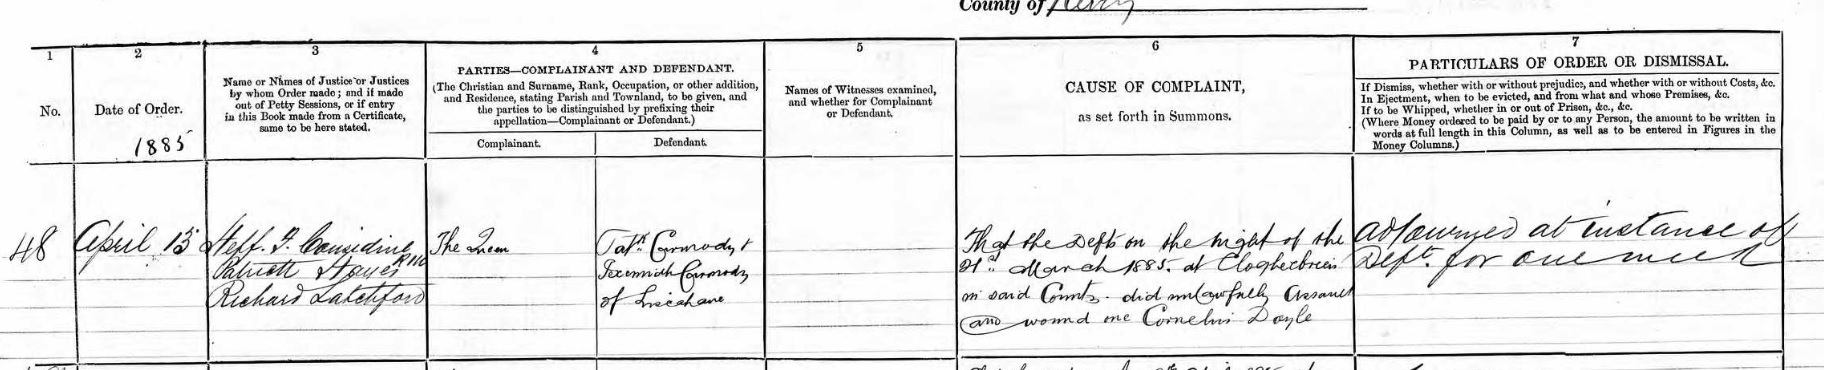 County of Kerry
1
2
3
4
5
6
7
No.
Date of Order.
1885
Name or Names of Justice or Justices
by whom Order made; and if made
out of Petty Sessions, or if entry
in this Book made from a Certificate,
same to be here stated.
PARTIES—COMPLAINANT AND DEFENDANT.
(The Christian and Surname, Rank, Occupation, or other addition,
and Residence, stating Parish and Townland, to be given, and
the parties to be distinguished by prefixing their
appellation—Complainant or Defendant.)
Complainant.
Defendant.
Names of Witnesses examined,
and whether for Complainant
or Defendant.
CAUSE OF COMPLAINT,
as set forth in Summons.
PARTICULARS OF ORDER OR DISMISSAL.
If Dismiss, whether with or without prejudice, and whether with or without Costs, &c.
In Ejectment, when to be evicted, and from what and whose Premises, &c.
If to be Whipped, whether in or out of Prison, &c., &c.
(Where Money ordered to be paid by or to any Person, the amount to be written in
words at full length in this Column, as well as to be entered in Figures in the
Money Columns.)
48
April 13
Heff. F. Considine RM
Patrick Hayes
Richard Latchford
The Queen
Patk Carmody &
Jeremiah Carmody
of Liscahane
That the Defts on the night of the
March 1885. at Clogherbrien
in said County. did unlawfully assault
and wound one Cornelius Doyle
Adjourned at instance of
Deft. for one week